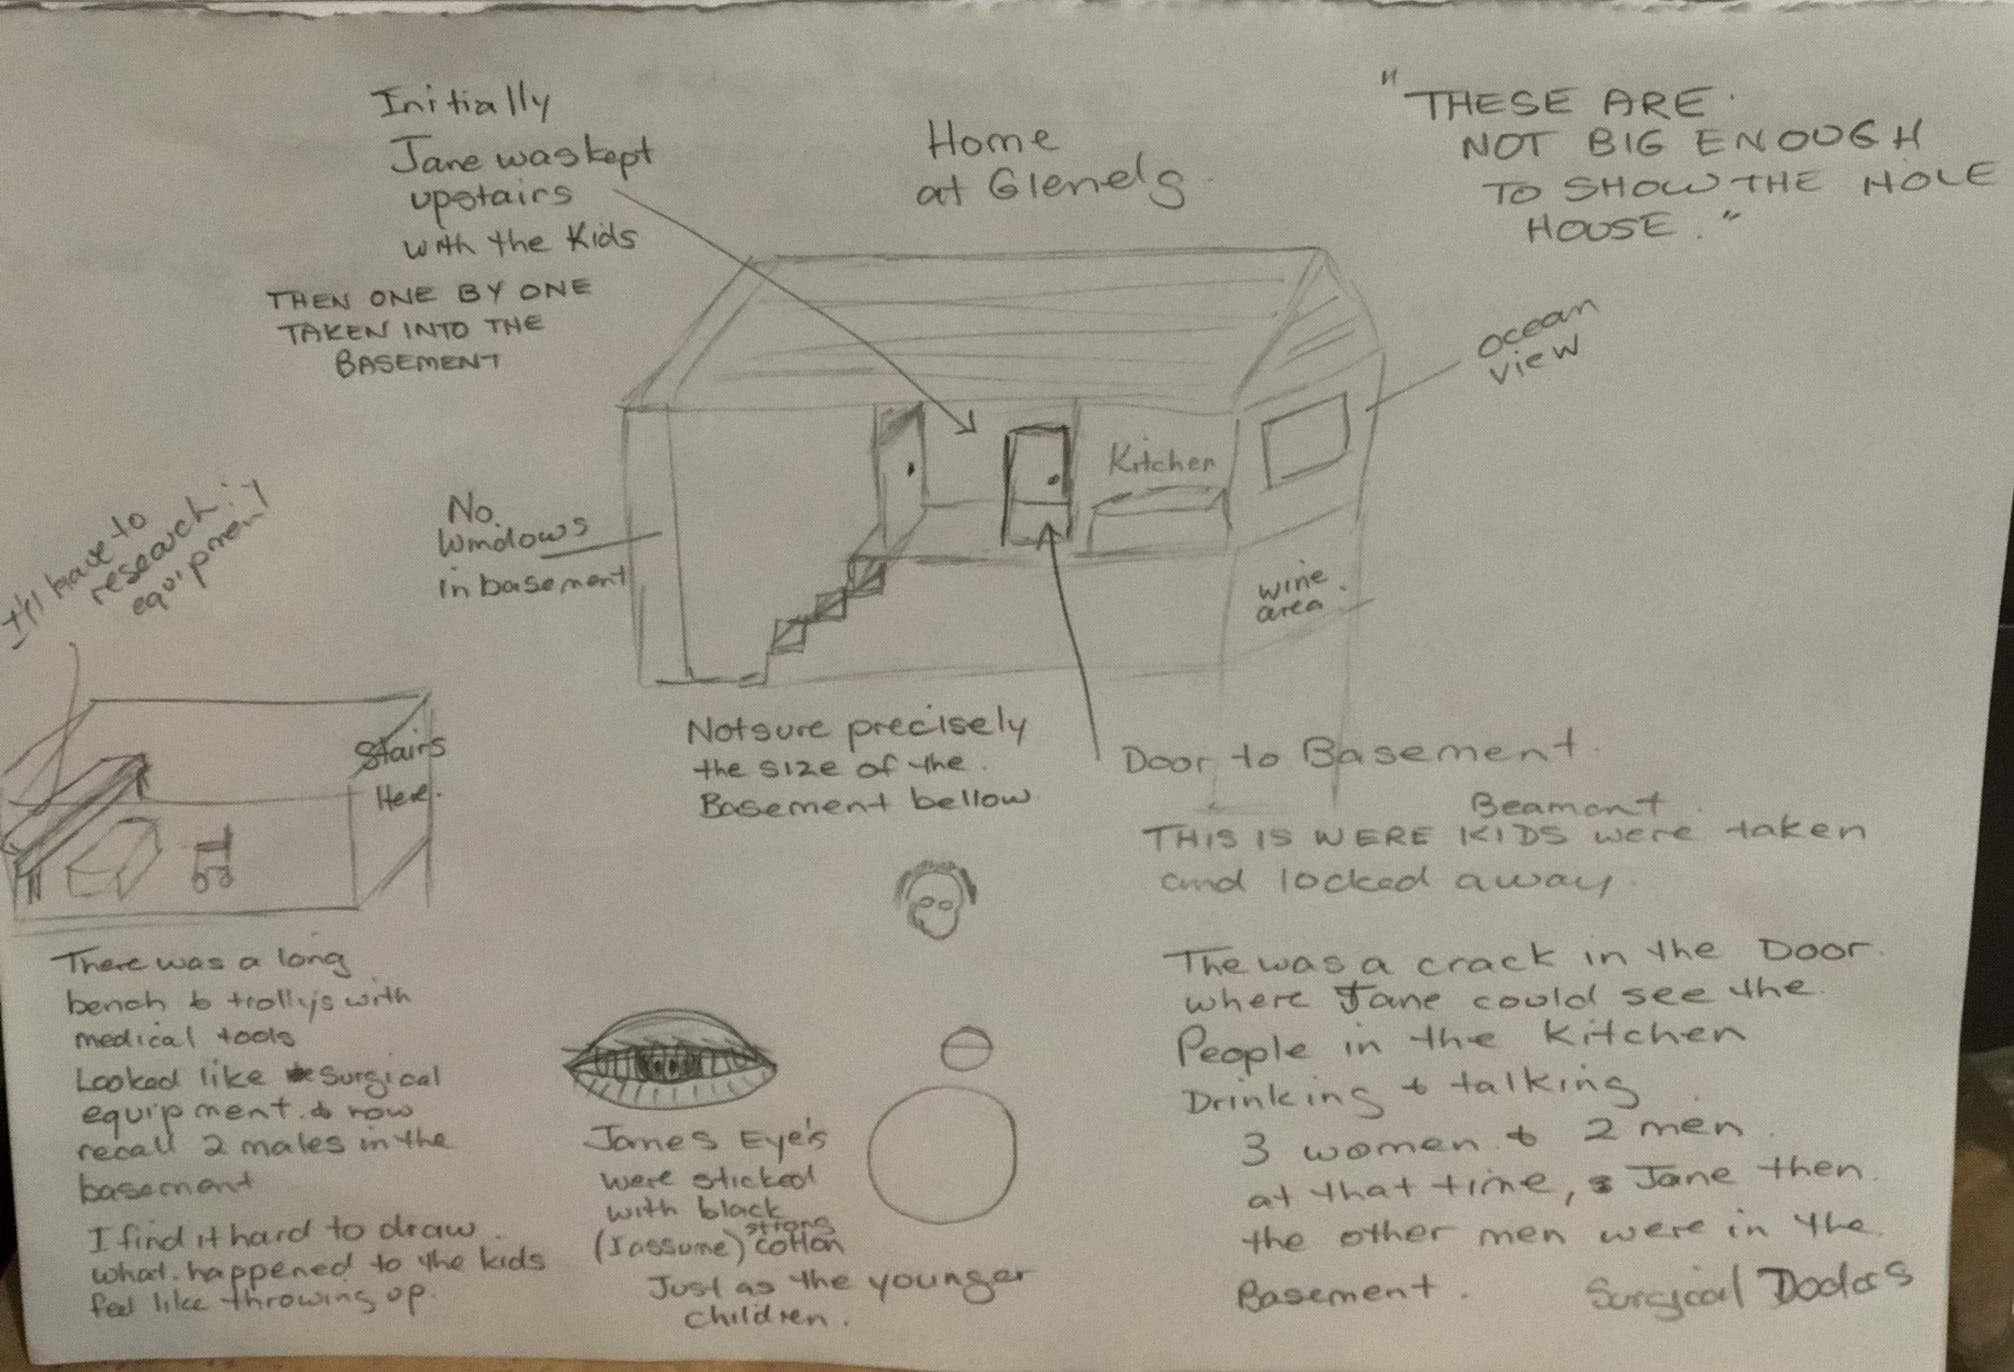 Initially
Jane was kept
upstairs
with the Kids
THEN ONE BY ONE
TAKEN INTO THE
BASEMENT
Home
at Glenelg
"THESE ARE
NOT BIG ENOUGH
TO SHOW THE HOLE
HOUSE."
ocean
view
Kitchen
wine
area
No
windows
in basement
I'll have to
research
equipment
Stairs
Here.
Not sure precisely
the size of the
Basement bellow
Door to Basement
Beamont
THIS IS WERE KIDS were taken
and locked away.
There was a long
bench & trolly's with
medical tools
Looked like surgical
equipment & now
recall 2 males in the
basement
I find it hard to draw
what happened to the kids
feel like throwing up.
James Eye's
were sticked
with black
(I assume) strong cotton
Just as the younger
children.
The was a crack in the Door
where Jane could see the
People in the Kitchen
Drinking & talking
3 women & 2 men
at that time, Jane then
the other men were in the
Basement. Surgical Doctors